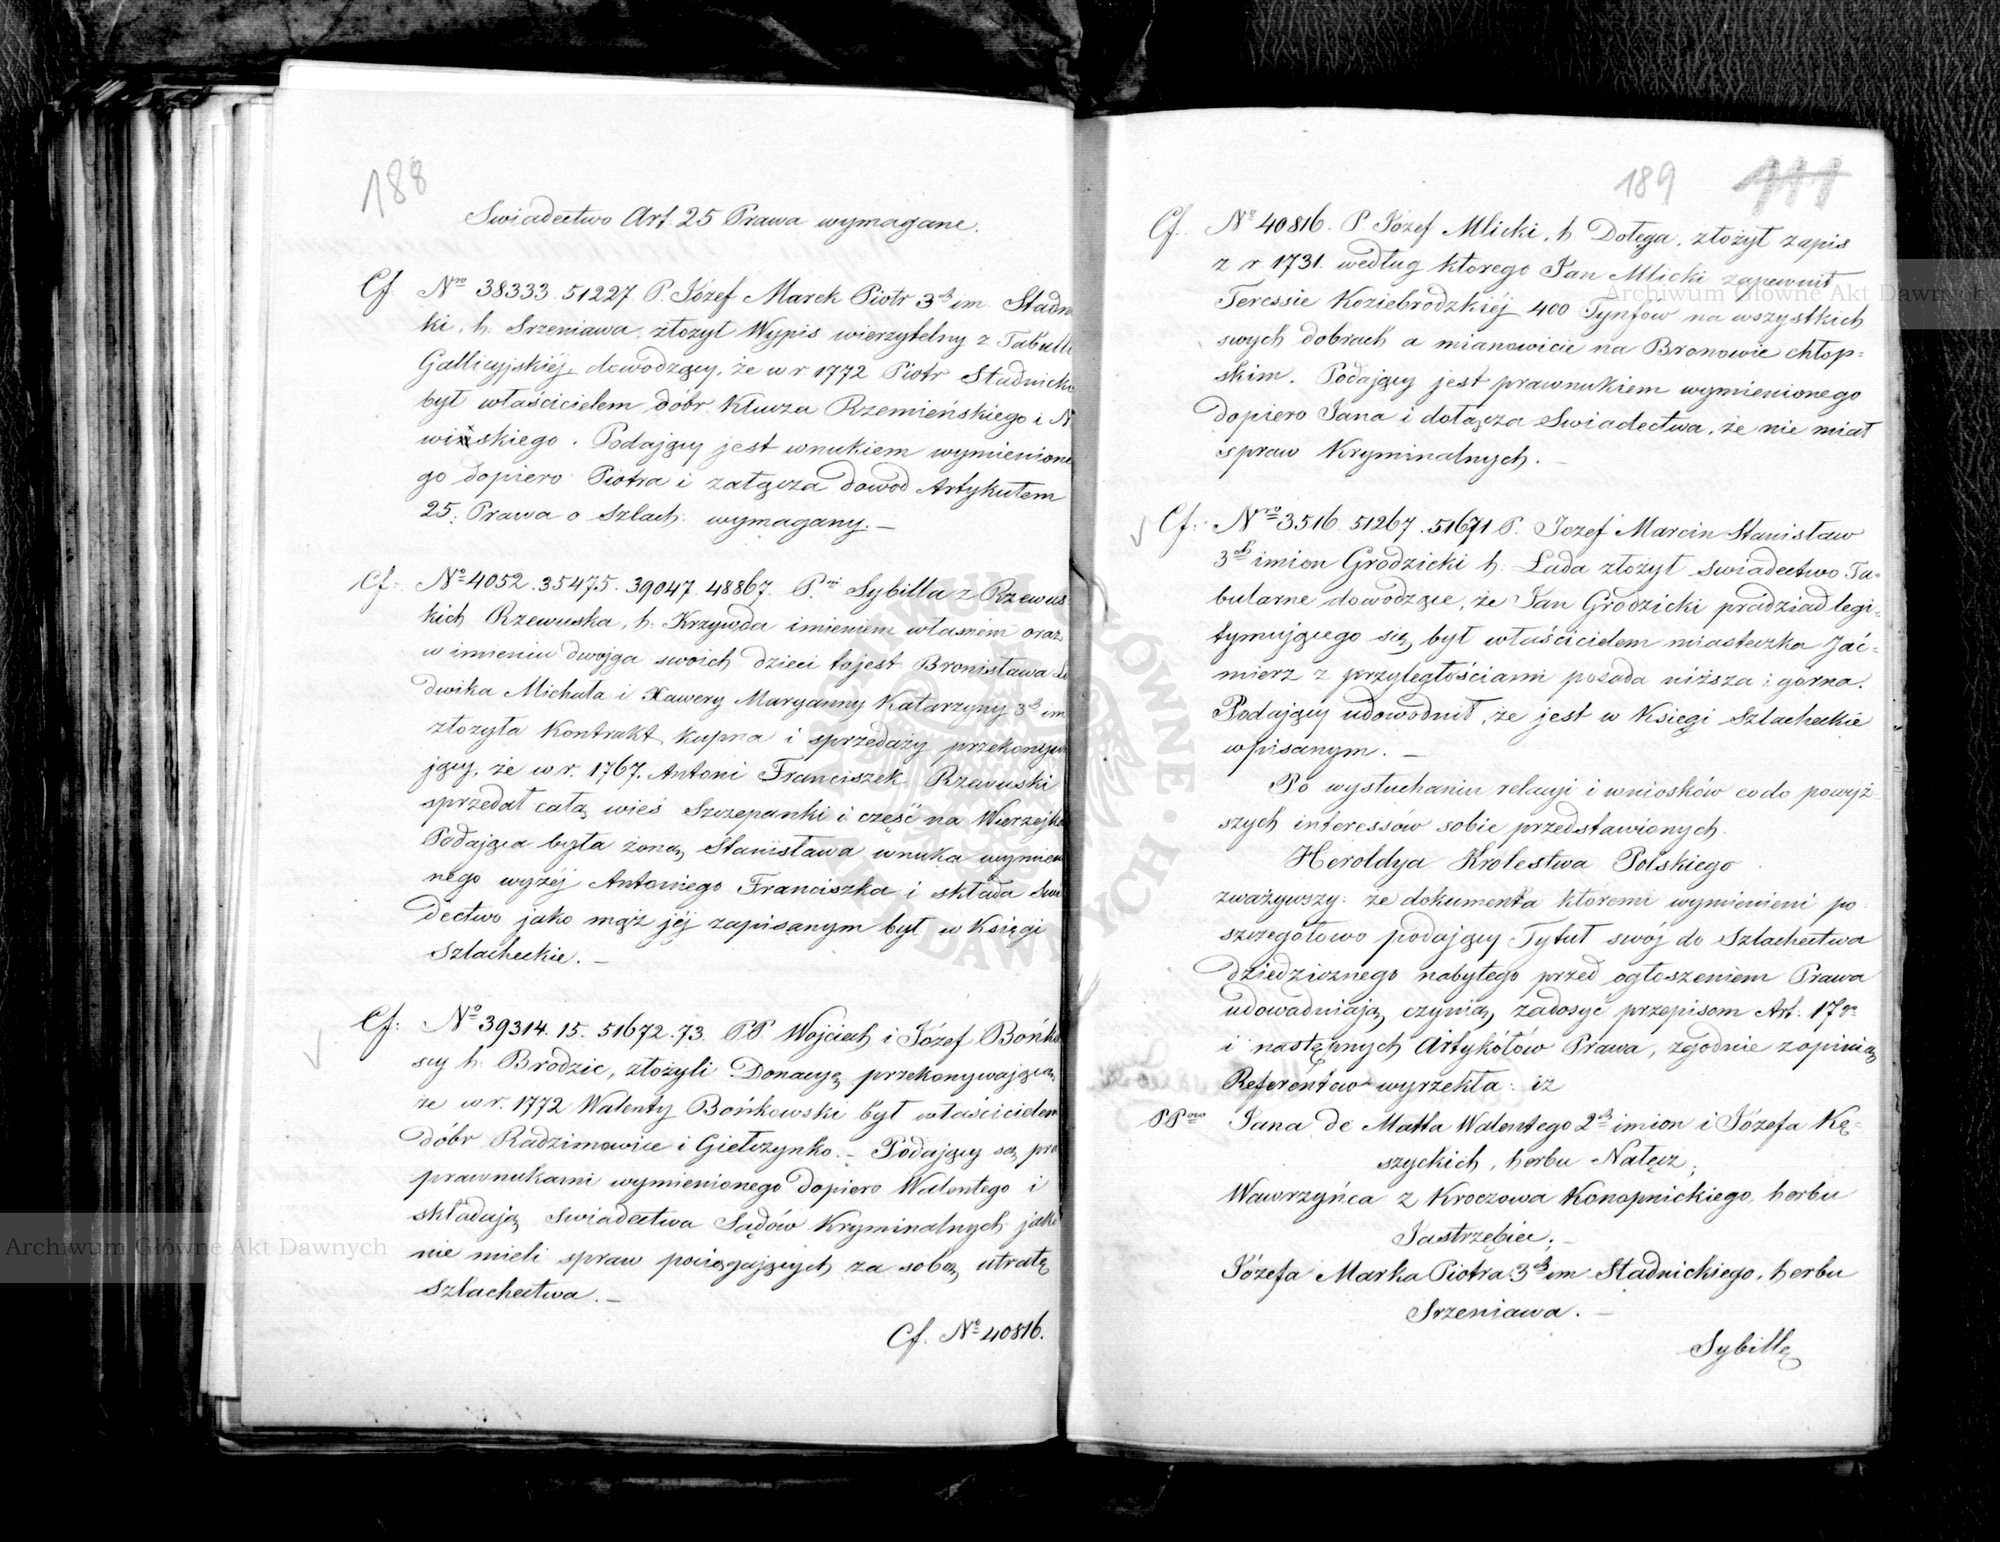 188
Swiadectwo Art. 25 Prawa wymagane.
Cf. Nro 38333. 51227. P. Józef Marek Piotr 3ch im. Stadnic
ki, h. Srzeniawa, złożył Wypis wierzytelny z Tabulli
Gallicyjskiéj, dowodzący, że w r. 1772 Piotr Stadnicki
był właścicielem dóbr Klucza Rzemieńskiego i
wińskiego. Podający jest wnukiem wymienione
go dopiero Piotra i załącza dowód Artykułem
25. Prawa o Szlach. wymagany. —
Cf: No 4052. 35475. 39047. 48867. P.ni Sybilla z Rzewus
kich Rzewuska, h. Krzywda imieniem własném oraz
w imieniu dwojga swoich dzieci tojest Bronisława Lu
dwika Michała i Xawery Maryanny Katarzyny 3ch im
złożyła Kontrakt kupna i sprzedaży przekonywa
jący, że w r. 1767. Antoni Franciszek Rzewuski
sprzedał całą wieś Szczepanki i część na Wierzejk
Podająca była żoną Stanisława wnuka wymienio
nego wyżéj Antoniego Franciszka i składa Swia
dectwo jako mąż jéj zapisanym był w Księgi
Szlacheckie. —
Cf: No 39314. 15. 51672. 73. PP. Wojciech i Józef Bońkow
scy h. Brodzic, złożyli Donacyę przekonywającą,
że w r. 1772 Walenty Bońkowski był właścicielem
dóbr Radzimowice i Giełczynko. — Podający są pra
prawnukami wymienionego dopiero Walentego i
składają Swiadectwa Sądów Kryminalnych jako
nie mieli spraw pociągających za sobą utratę
Szlachectwa. —
Cf. No 40816.
189 111
Cf. No 40816. P. Józef Mlicki, h. Dołęga, złożył zapis
z r 1731. według którego Jan Mlicki zapewnił
Teressie Koziebrodzkiéj 400 Tynfów na wszystkich
swych dobrach a mianowicie na Bronowie chłop=
skim. Podający jest prawnukiem wymienionego
dopiero Jana i dołącza Swiadectwa, że nie miał
spraw Kryminalnych. —
Cf: Nro 3516. 51267. 51671 P. Jozef Marcin Stanisław
3ch imion Grodzicki h. Łada złożył swiadectwo Ta=
bularne dowodzące, że Jan Grodzicki pradziad legi=
tymującego się, był właścicielem miasteczka Jać=
mierz z przyległościami posada niższa i górna.
Podający udowodnił, że jest w Księgi Szlacheckie
wpisanym. —
Po wysłuchaniu relacyi i wniosków codo powyż=
szych interessow sobie przedstawionych.
Heroldya Królestwa Polskiego
zważywszy: że dokumenta ktoremi wymienieni po=
szczegółowo podający Tytuł swój do Szlachectwa
dziedzicznego nabytego przed ogłoszeniem Prawa
udowadniają, czynią zadosyć przepisom Art. 17go
i następnych Artykółów Prawa, zgodnie z opinią
Referentów wyrzekła: iż
PPow Jana de Matta Walentego 2ch imion i Józefa Kę=
szyckich, herbu Nałęcz;
Wawrzyńca z Kroczowa Konopnickiego, herbu
Jastrzębiec; —
Józefa Marka Piotra 3ch im Stadnickiego, herbu
Srzeniawa. —
Sybillę
Archiwum Główne Akt Dawnych
Archiwum Główne Akt Dawnych